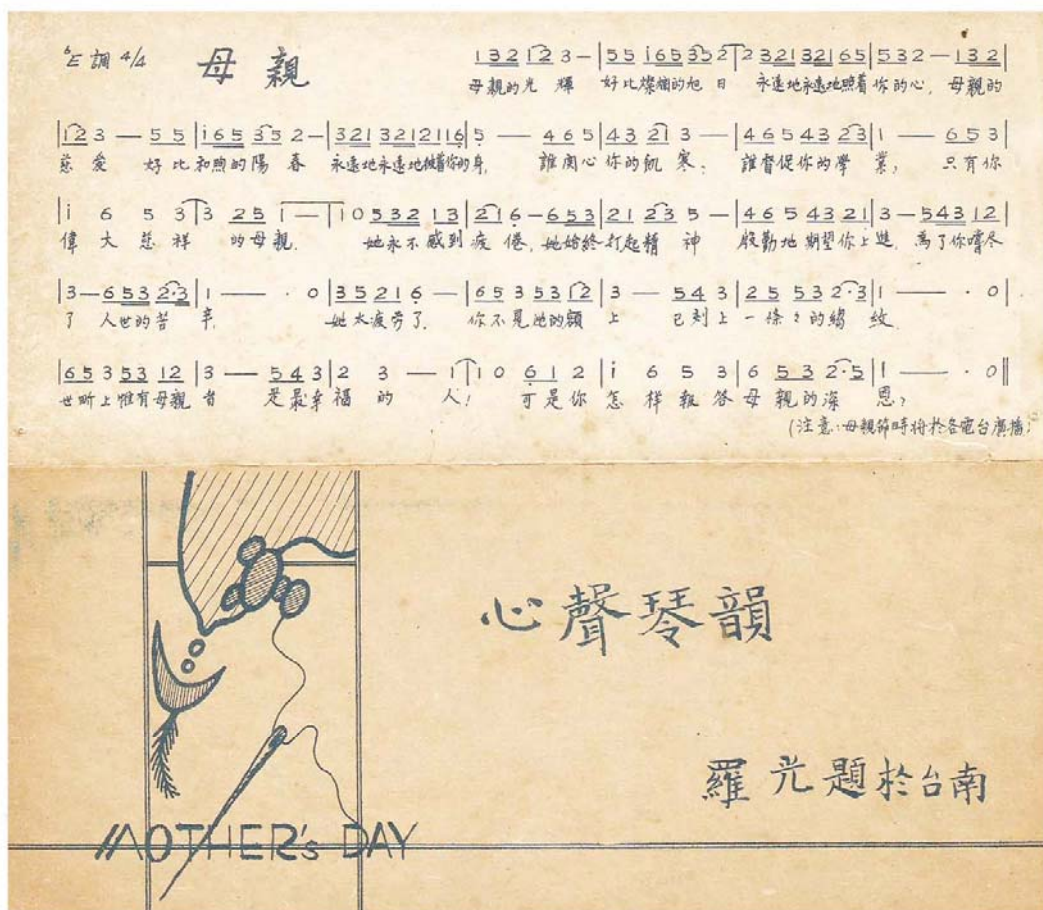 ♭E調 4/4 母親
1 3 2 1 2 3 — | 5 5 i 6 5 3 5 2 | 2 3 2 1 3 2 1 6 5 | 5 3 2 — 1 3 2 |
母親的光輝 好比燦爛的旭日 永遠地永遠地照着你的心, 母親的
| 1 2 3 — 5 5 | i 6 5 3 5 2 — | 3 2 1 3 2 1 2 1 1 6 | 5 — 4 6 5 | 4 3 2 1 3 — | 4 6 5 4 3 2 3 | 1 — 6 5 3 |
慈愛 好比和煦的陽春 永遠地永遠地擁着你的身, 誰關心你的飢寒, 誰督促你的學業, 只有你
| i 6 5 3 | 3 2 5 1 — | 1 0 5 3 2 1 3 | 2 1 6 — 6 5 3 | 2 1 2 3 5 — | 4 6 5 4 3 2 1 | 3 — 5 4 3 1 2 |
偉大慈祥的母親, 她永不感到疲倦, 她始終打起精神 殷勤地期望你上進, 為了你嚐尽
| 3 — 6 5 3 2·3 | 1 — · 0 | 3 5 2 1 6 — | 6 5 3 5 3 1 2 | 3 — 5 4 3 | 2 5 5 3 2·3 | 1 — · 0 |
了人世的苦辛, 她太疲勞了, 你不見她的額上 已刻上一條々的縐紋,
| 6 5 3 5 3 1 2 | 3 — 5 4 3 | 2 3 — 1 | 1 0 6 1 2 | i 6 5 3 | 6 5 3 2·5 | 1 — · 0 ‖
世界上惟有母親者 是最幸福的人! 可是你怎样報答母親的深恩?
(注意:母親節時将於各電台廣播)
心聲琴韻
羅光題於台南
MOTHER's DAY